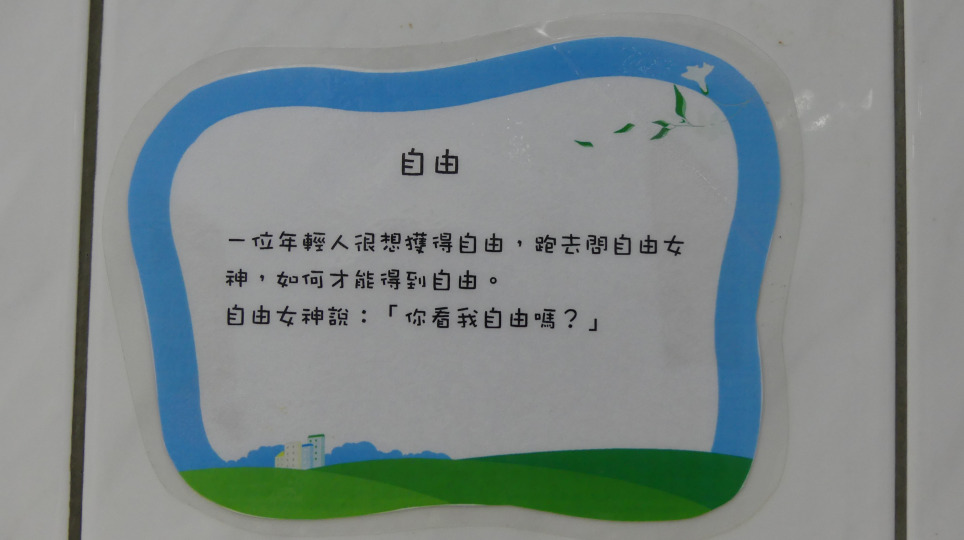 自由
一位年輕人很想獲得自由，跑去問自由女
神，如何才能得到自由。
自由女神說：「你看我自由嗎？」